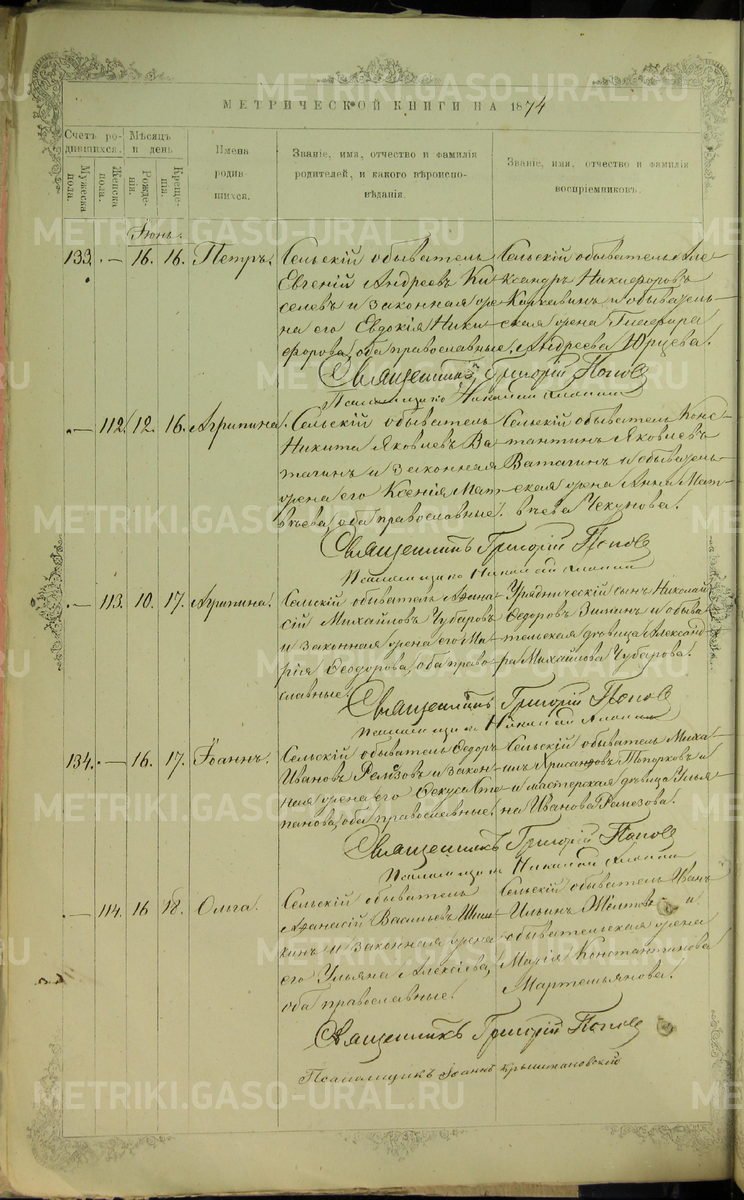 МЕТРИЧЕСКОЙ КНИГИ НА 1874
Счетъ родившихся.
Мужеска пола.
Женска пола.
Мѣсяцъ и день
Рожденія.
Крещенія.
Имена родившихся.
Званіе, имя, отчество и фамилія родителей, и какого вѣроисповѣданія.
Званіе, имя, отчество и фамилія воспріемниковъ.
Іюнь.
133. — 16. 16. Петръ.
Сельскій обыватель
Евгеній Андреевъ Ки-
селевъ и законная же-
на его Евдокія Ники-
форова, оба православные.
Сельскій обыватель Але-
ксандръ Никифоровъ
и обыватель-
ская жена Глафира
Андреева
Священникъ Григорій Поповъ
— 112. 12. 16. Агрипина.
Сельскій обыватель
Никита Яковлевъ Ва-
тагинъ и законная
жена его Ксенія Мат-
вѣева, оба православные.
Сельскій обыватель Конс-
тантинъ Яковлевъ
Ватагинъ и обыватель-
ская жена Анна Мат-
вѣева Чекунова.
Священникъ Григорій Поповъ
— 113. 10. 17. Агрипина.
Сельскій обыватель Афана-
сій Михайловъ Чубаровъ
и законная жена его Ма-
рія Феодорова, оба право-
славные.
Урядническій сынъ Николай
Федоровъ Зиминъ и обыва-
тельская дѣвица Александ-
ра Михайлова Чубарова.
Священникъ Григорій Поповъ
134. — 16. 17. Іоаннъ.
Сельскій обыватель Федоръ
Ивановъ Ремезовъ и закон-
ная жена его Фекуса Сте-
панова, оба православные.
Сельскій обыватель Миха-
илъ Хрисанфовъ Топорковъ
и мастерская дѣвица Улья-
на Иванова Ремезова.
Священникъ Григорій Поповъ
— 114. 16 18. Ольга.
Сельскій обыватель
Афанасій Васильевъ
и законная жена
его Ульяна Алексіева,
оба православные.
Сельскій обыватель Иванъ
Ильинъ Желтовъ и
обывательская жена
Марія Константинова
Мартемьянова.
Священникъ Григорій Поповъ
Псаломщикъ Іоаннъ Крыжановскій
METRIKI.GASO-URAL.RU